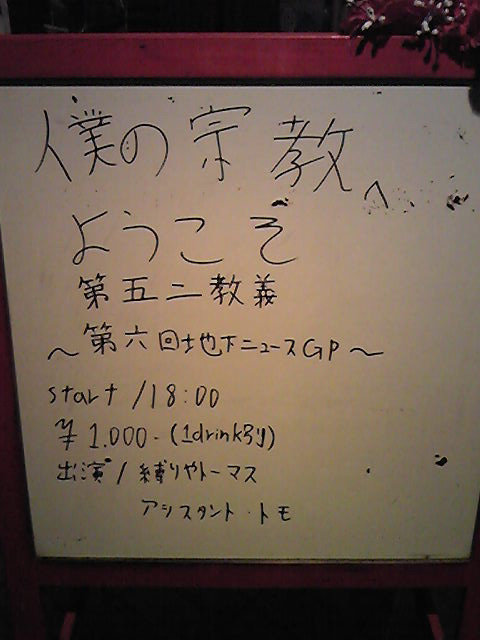 僕の宗教へ
ようこそ
第五二教義
～第六回地下ニュースGP～
start /18:00
¥1.000-(1drink別)
出演/縛りやトーマス
アシスタント・トモ